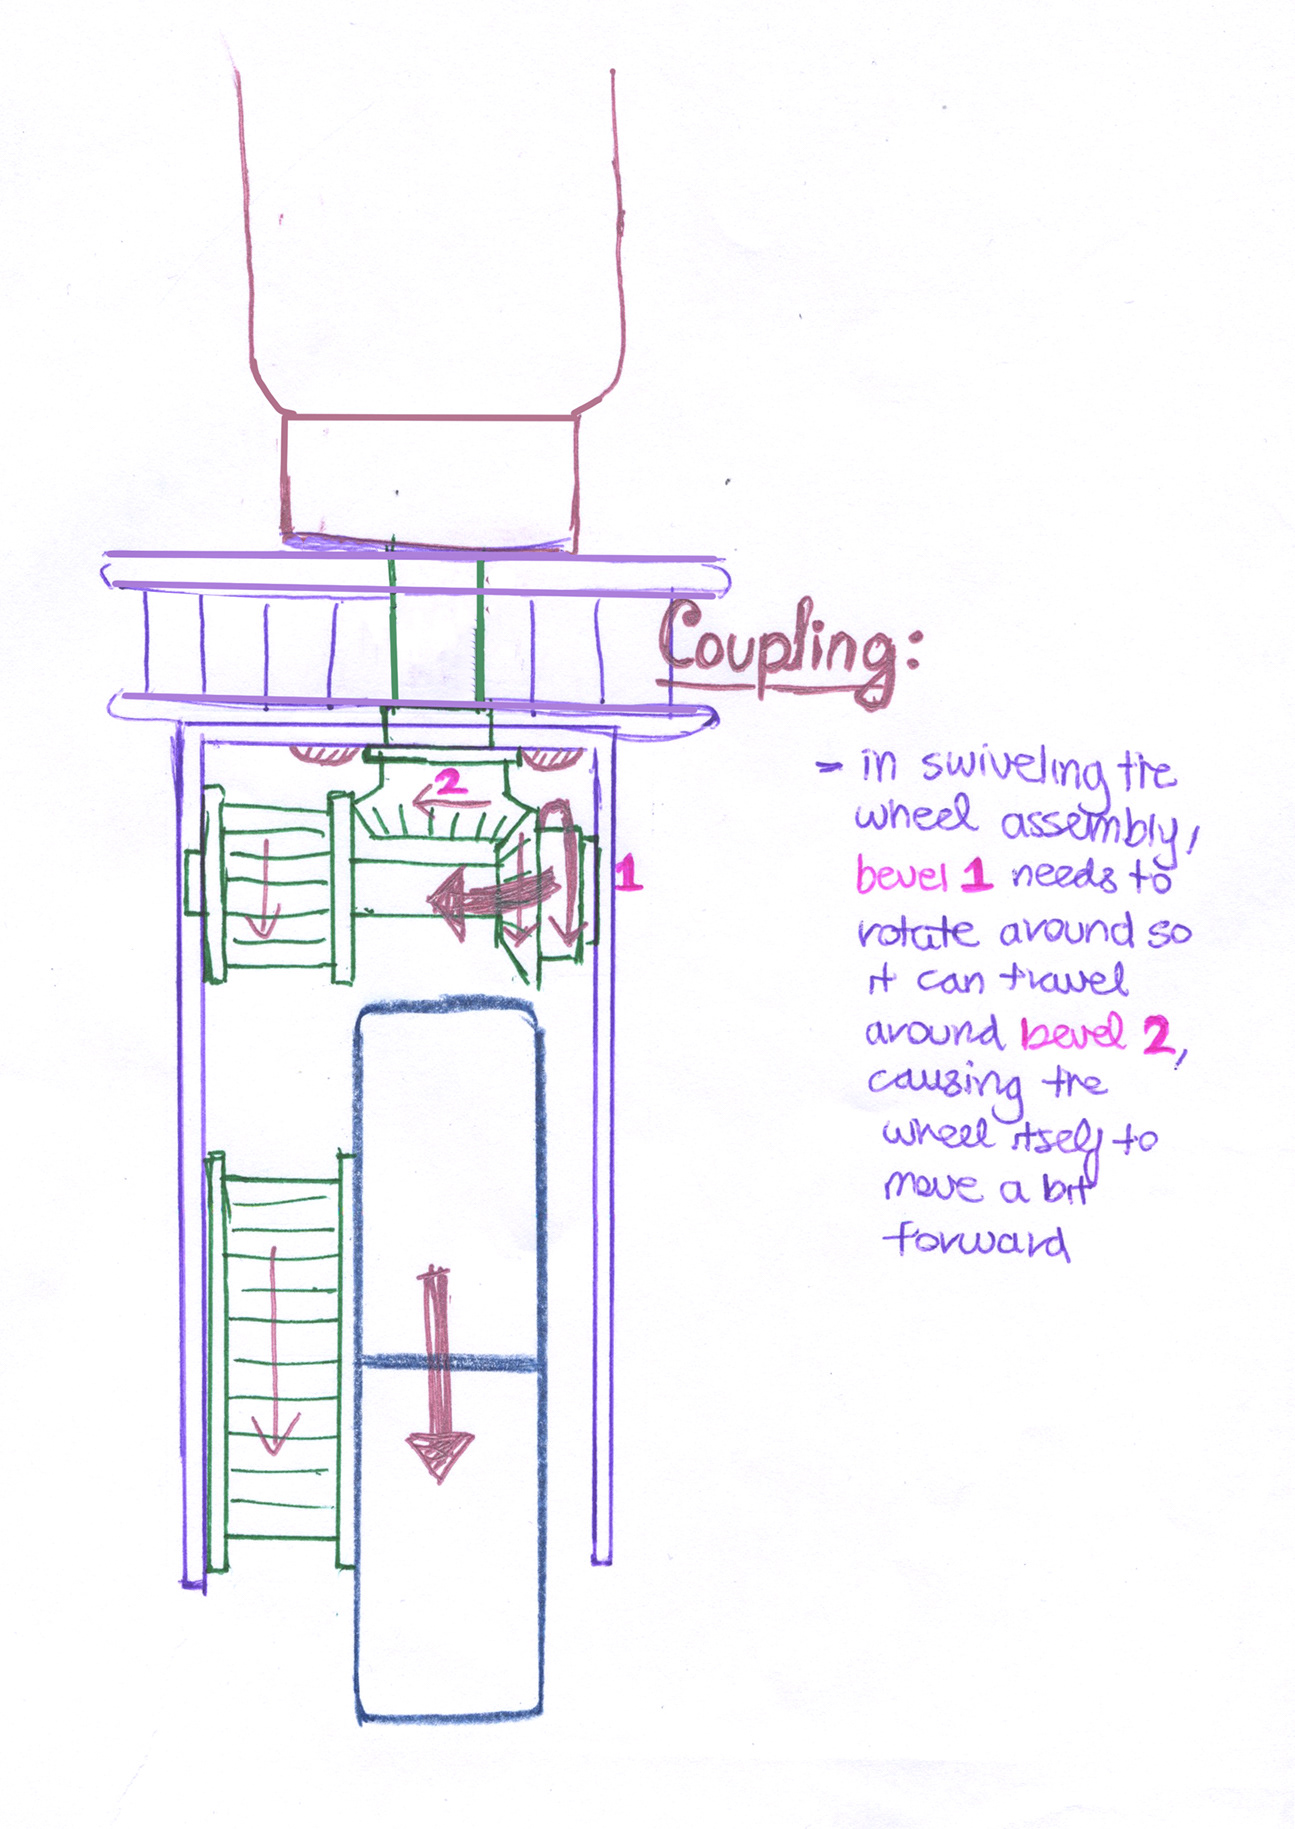 Coupling:
2
- in swiveling the
wheel assembly,
1
bevel 1 needs to
rotate around so
it can travel
around bevel 2,
causing the
wheel itself to
move a bit
forward